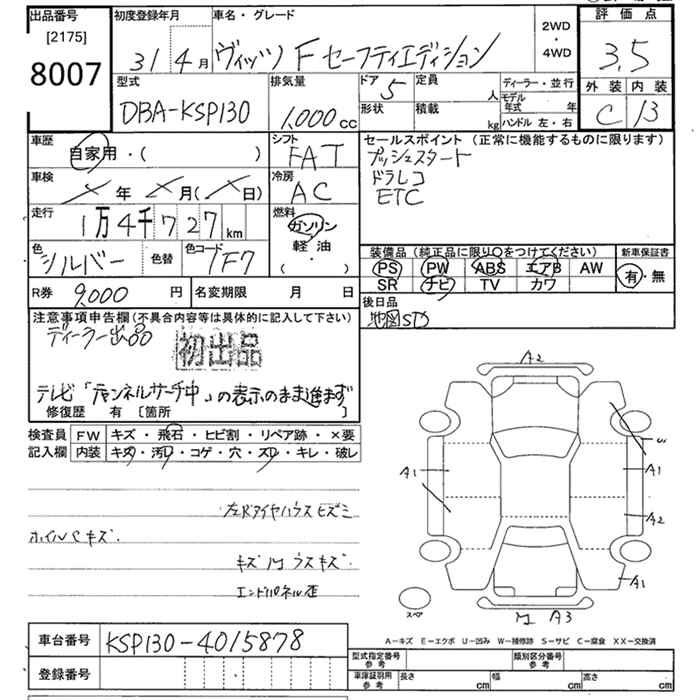 出品番号
[2175]
8007
初度登録年月
31 4月
車名・グレード
ヴィッツ F セーフティエディション
2WD
・
4WD
評価点
3,5
外装 内装
C B
型式
DBA-KSP130
排気量
1,000cc
ドア 5
形状
定員 人
積載 kg
ディーラー・並行
モデル年式 年
ハンドル 左・右
車歴
自家用・( )
シフト
FAT
セールスポイント(正常に機能するものに限ります)
プッシュスタート
ドラレコ
ETC
車検
年 月( 日)
冷房
AC
走行
1万4千727km
燃料
ガソリン
軽油
( ・ )
色
シルバー
色替
色コード
1F7
装備品(純正品に限り○をつけてください)
PS PW ABS エアB AW
SR ナビ TV カワ
新車保証書
有・無
R券 9,000円
名変期限 月 日
後日品
地図SD
注意事項申告欄(不具合内容等は具体的に記入して下さい)
ディーラー出品
初出品
テレビ「チャンネルサーチ中」の表示のまま進まず
修復歴 有 [箇所 ]
検査員記入欄
FW キズ・飛石・ヒビ割・リペア跡・×要
内装 キズ・汚れ・コゲ・穴・スレ・キレ・破レ
左Rタイヤハウスヒズミ
ホイルCキズ
エンドパネル歪
A2
A1
A1
A2
A1
A3
スペア
車台番号 KSP130-4015878
登録番号
A－キズ E－エクボ U－凹み W－補修跡 S－サビ C－腐食 XX－交換済
型式指定番号 参考
類別区分番号 参考
車庫証明用 参考
長さ cm 幅 cm 高さ cm